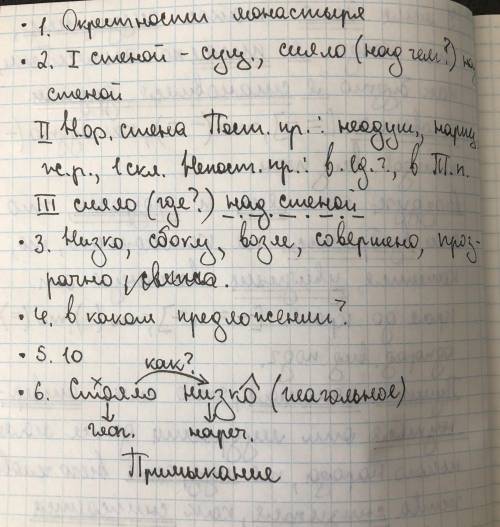 • 1. Окрестности монастыря
• 2. I стеной - сущ., сияло (над чем?) над
стеной
II Н.ф. стена Пост. пр.: неодуш., нариц.
ж.р., 1 скл. Непост. пр.: в ед.ч., в Т.п.
III сияло (где?) над стеной
• 3. Низко, сбоку, возле, совершено, проз-
рачно
• 4. в каком предложении?
• 5. 10
как?
• 6. Стояло низко (глагольное)
глаг. нареч.
Примыкание